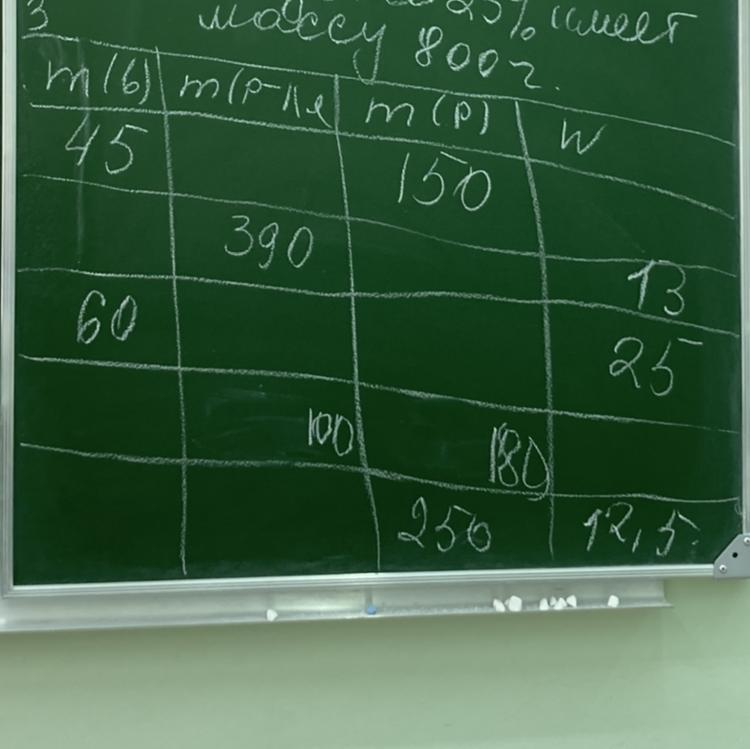 3 25% имеет
массу 800г.
m(в) m(р-ля m(р) W
45 150
390 13
60 25
100 180
250 12,5